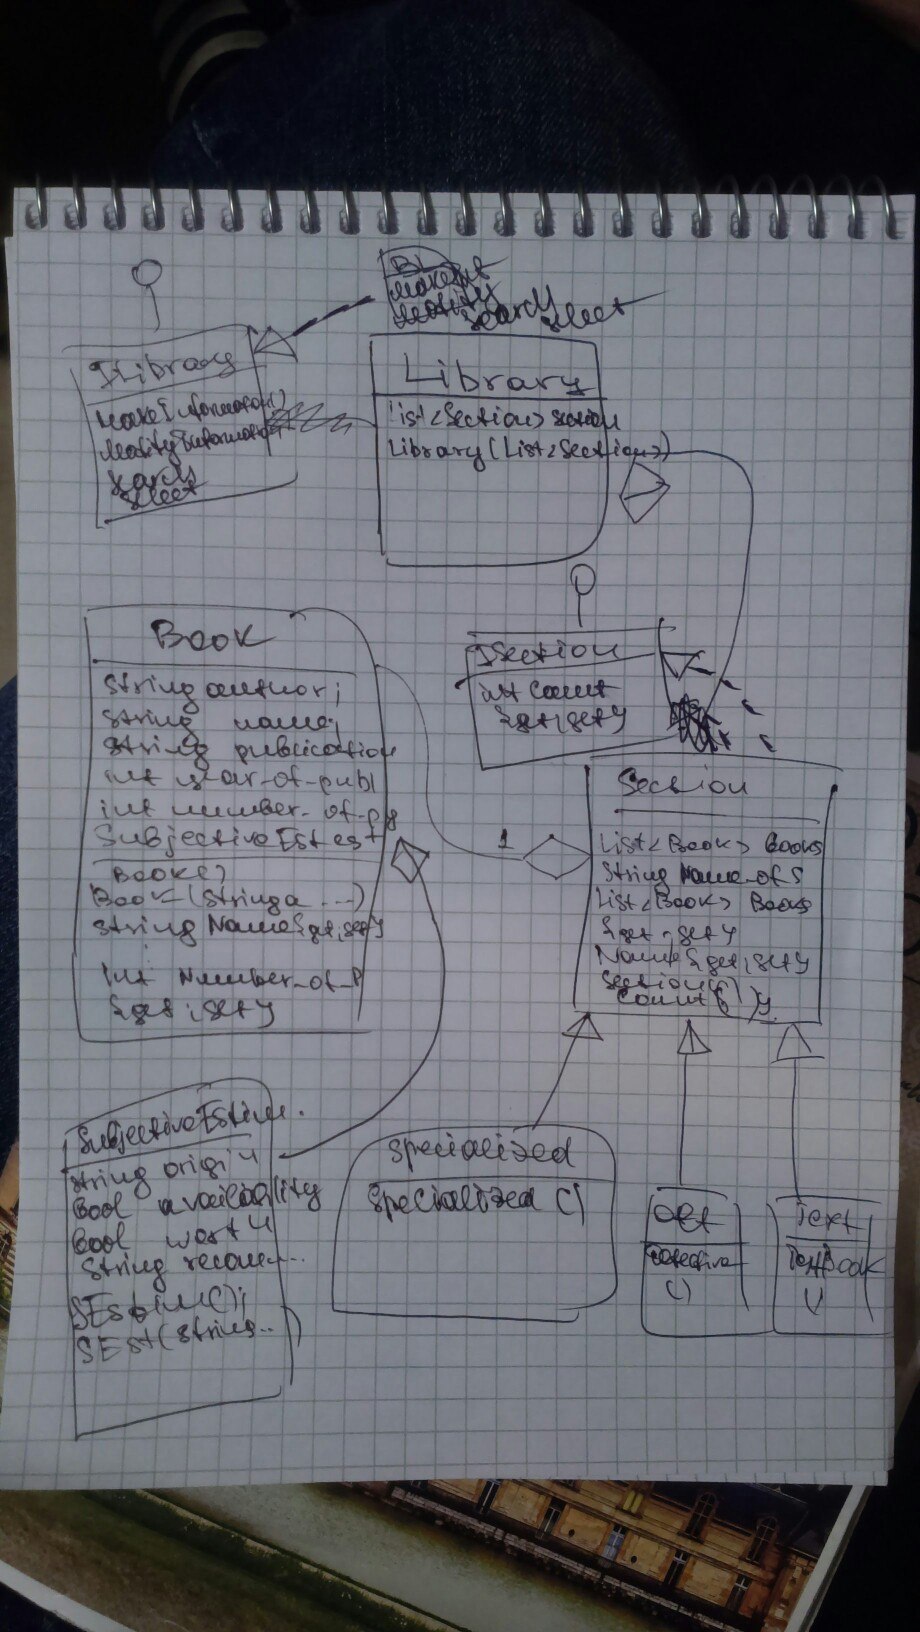 BL
MakeInf
Modify
Search
Select
ILibrary
MakeInformation()
ModifyInformation
Search
Select
Library
List<Section> section
Library(List<Section>)
Book
String author;
String name;
String publication
int year-of-publ
int number-of-pg
SubjectiveEst est
Book()
Book(String a ...)
String Name{get;set}
int Number-of-P
{get;set}
ISection
int Count
{get;set}
1
Section
List<Book> Books
String Name-of-S
List<Book> Books
{get;set}
Name{get;set}
Section()
Count{ }
SubjectiveEstim.
String origin
Bool availability
Bool worth
String recom...
SEstim();
SEst(String..)
Specialized
Specialized ()
Det
Detective
()
Text
TextBook
()